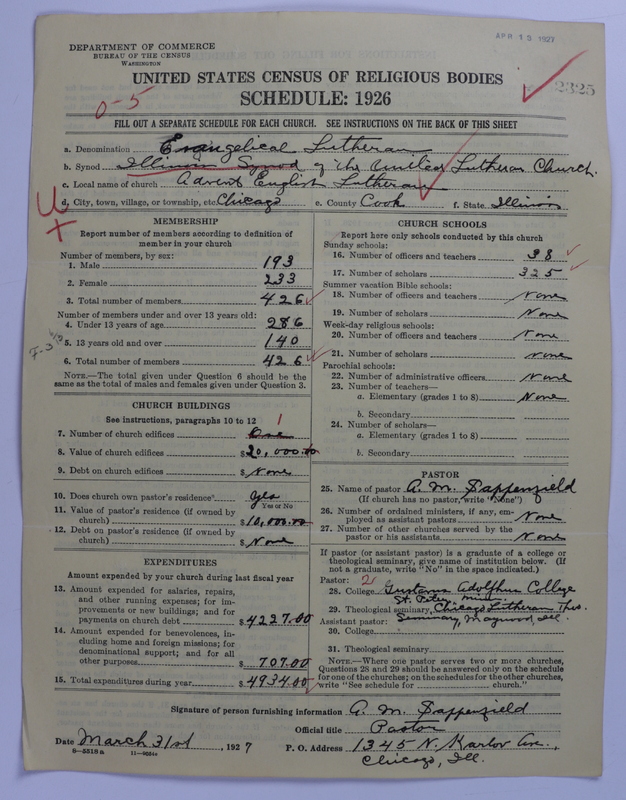 APR 19 1927
DEPARTMENT OF COMMERCE
BUREAU OF THE CENSUS
WASHINGTON
UNITED STATES CENSUS OF RELIGIOUS BODIES
2325
SCHEDULE: 1926
0-5
FILL OUT A SEPARATE SCHEDULE FOR EACH CHURCH. SEE INSTRUCTIONS ON THE BACK OF THIS SHEET
a. Denomination Evangelical Lutheran
b. Synod Illinois Synod of the United Lutheran Church.
c. Local name of church Advent English Lutheran
d. City, town, village, or township, etc. Chicago e. County Cook f. State Illinois
MEMBERSHIP
Report number of members according to definition of
member in your church
Number of members, by sex:
1. Male 193
2. Female 233
3. Total number of members 426
Number of members under and over 13 years old:
4. Under 13 years of age 286
5. 13 years old and over 140
6. Total number of members 426
NOTE.—The total given under Question 6 should be the
same as the total of males and females given under Question 3.
CHURCH BUILDINGS
See instructions, paragraphs 10 to 12
7. Number of church edifices One 1
8. Value of church edifices $20,000.00
9. Debt on church edifices $ None
10. Does church own pastor's residence? Yes
Yes or No
11. Value of pastor's residence (if owned by
church) $10,000.00
12. Debt on pastor's residence (if owned by
church) $ None
EXPENDITURES
Amount expended by your church during last fiscal year
13. Amount expended for salaries, repairs,
and other running expenses; for im-
provements or new buildings; and for
payments on church debt $4227.00
14. Amount expended for benevolences, in-
cluding home and foreign missions; for
denominational support; and for all
other purposes $707.00
15. Total expenditures during year $4934.00
CHURCH SCHOOLS
Report here only schools conducted by this church
Sunday schools:
16. Number of officers and teachers 38
17. Number of scholars 325
Summer vacation Bible schools:
18. Number of officers and teachers None
19. Number of scholars None
Week-day religious schools:
20. Number of officers and teachers None
21. Number of scholars None
Parochial schools:
22. Number of administrative officers None
23. Number of teachers—
a. Elementary (grades 1 to 8) None
b. Secondary
24. Number of scholars—
a. Elementary (grades 1 to 8)
b. Secondary
PASTOR
25. Name of pastor A. M. Sappenfield
(If church has no pastor, write "None")
26. Number of ordained ministers, if any, em-
ployed as assistant pastors None
27. Number of other churches served by the
pastor or his assistants None
If pastor (or assistant pastor) is a graduate of a college or
theological seminary, give name of institution below. (If
not a graduate, write "No" in the space indicated.)
Pastor: 2
28. College Gustavus Adolphus College
St. Peter Minn
29. Theological seminary, Chicago Lutheran Theo.
Assistant pastor: Seminary, Maywood, Ill.
30. College
31. Theological seminary
NOTE.—Where one pastor serves two or more churches,
Questions 28 and 29 should be answered only on the schedule
for one of the churches; on the schedules for the other churches,
write "See schedule for church."
Signature of person furnishing information A. M. Sappenfield
Official title Pastor
Date March 31st, 1927 P. O. Address 1345 N. Karlov Ave.,
Chicago, Ill.